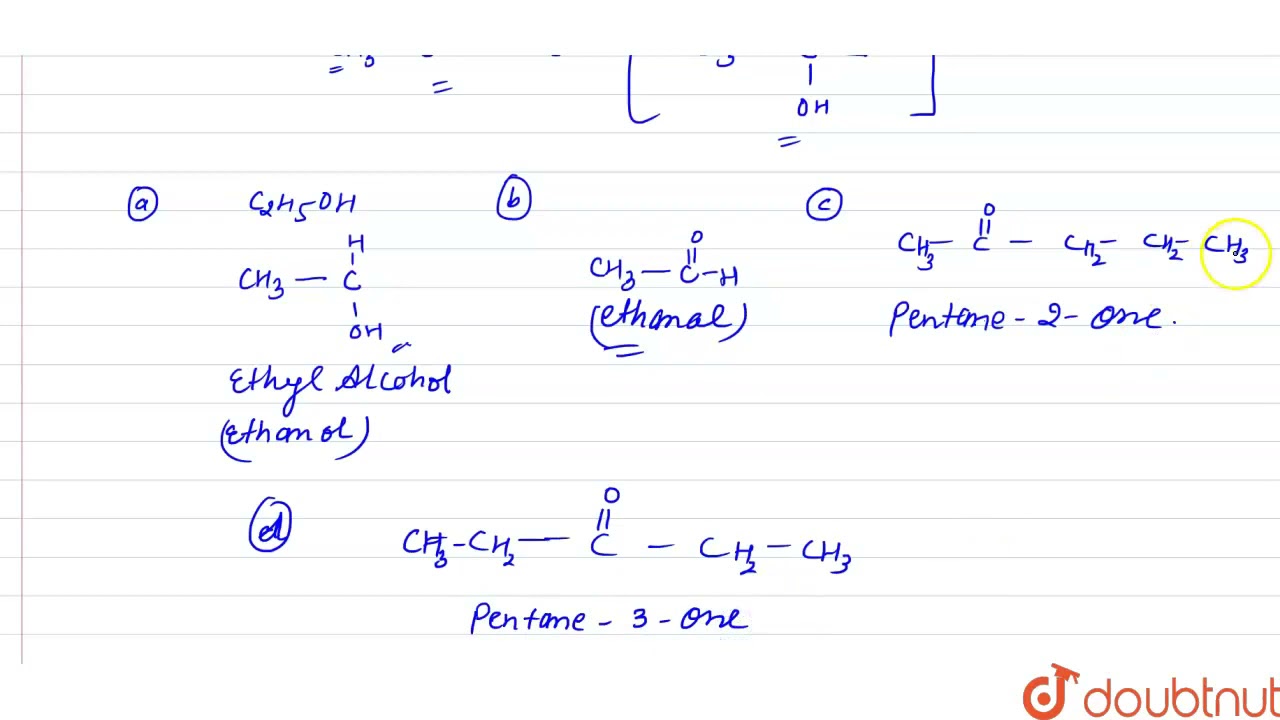 OH
(a) C2H5OH
H
CH3 — C
OH
Ethyl Alcohol
(Ethanol)
(b)
O
CH3 — C – H
(Ethanal)
(c)
O
CH3 — C — CH2 — CH2 — CH3
Pentane - 2 - one.
(d)
O
CH3 - CH2 — C — CH2 — CH3
Pentane - 3 - one
doubtnut